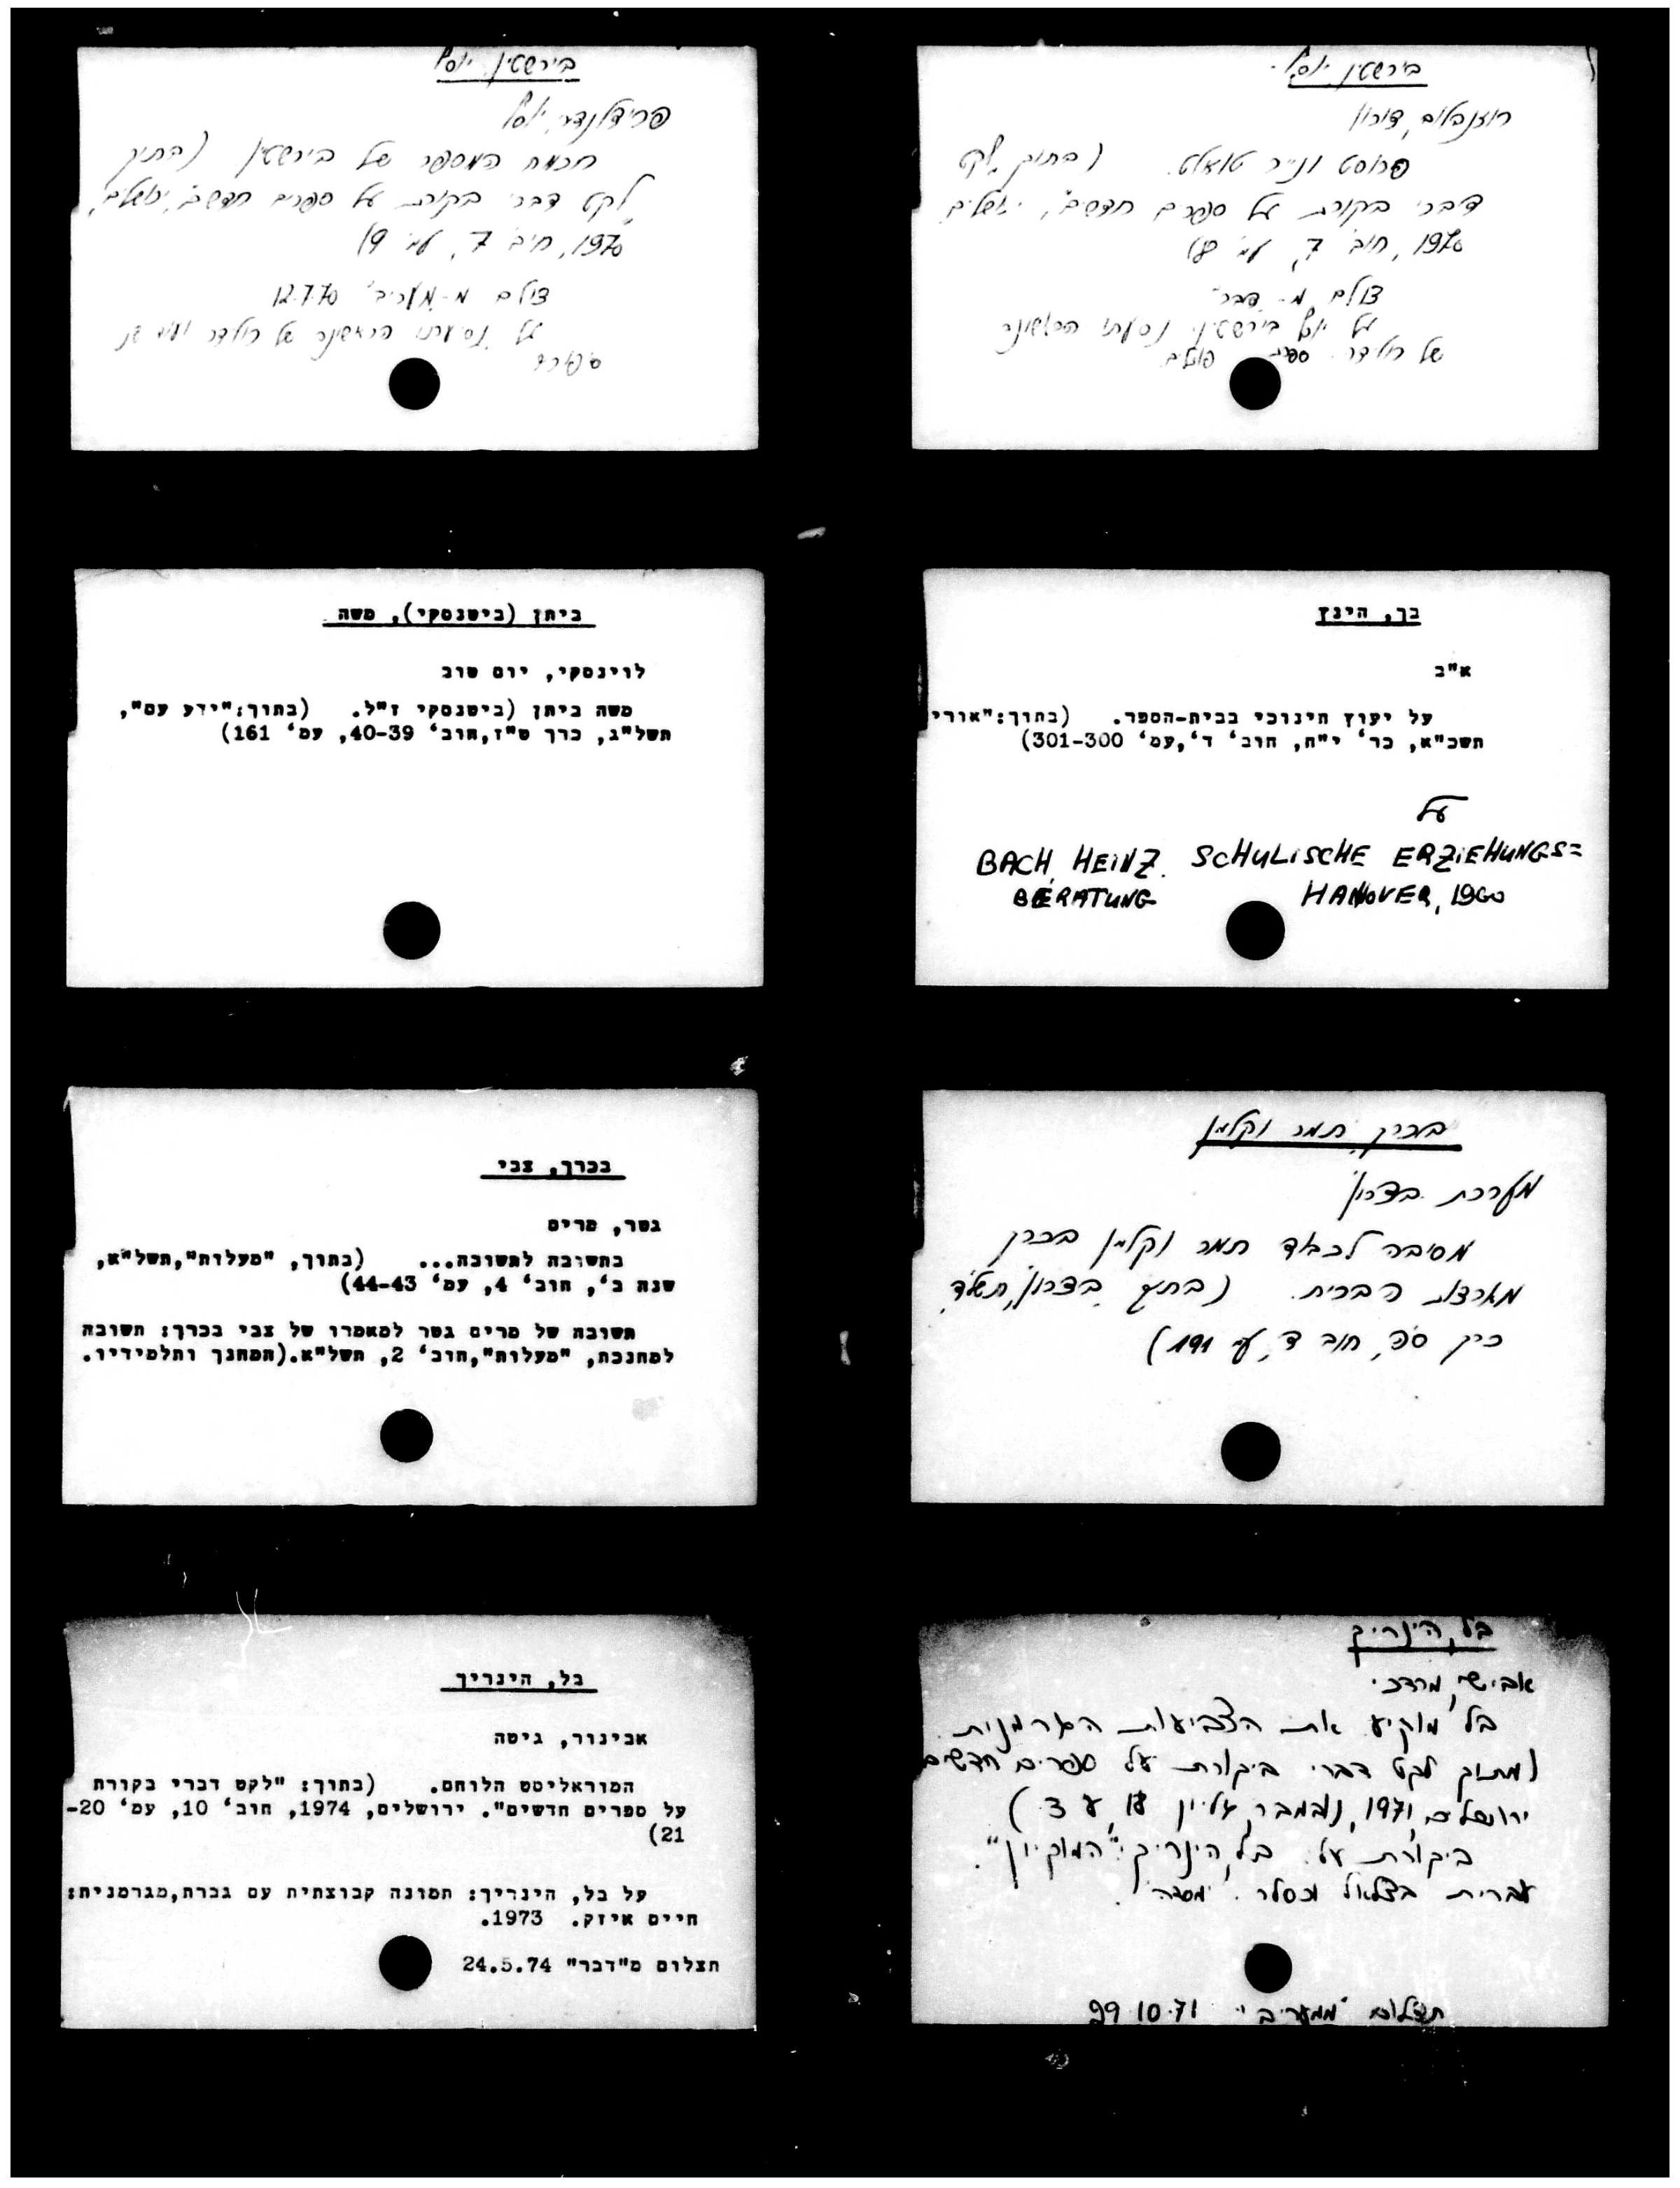 בירשטין יוסף
רוזנבלום, דורון
פרוסט ונייר טואלט. (בתוך "לקט
דיברי בקורת על ספרים חדשים", ירושלים
1970, חוב' 7, עמ' 8)
צולם מ-"דבר"
על יוסף בירשטין: נסיעתו הראשונה
של רולידר.
בירשטין יוסף
פרידלנדר, יוסף
חכמת המספר של בירשטין (בתוך
"לקט דברי בקורת על ספרים חדשים", ירושלים,
1970, חוב' 7, עמ' 9)
צולם מ-"מעריב" 12.7.70
על נסיעתו הראשונה של רולידר
בך, הינץ
א"ב
על יעוץ חינוכי בבית-הספר. (בתוך:"אורי
תשכ"א, כר' י"ח, חוב' ד',עמ' 301-300)
על
BACH, HEINZ. SCHULISCHE ERZIEHUNGS=
BERATUNG HANOVER, 1960
ביתן (ביטנסקי), משה
לוינסקי, יום טוב
משה ביתן (ביטנסקי ז"ל. (בתוך:"ידע עם",
תשל"ג, כרך ט"ז,חוב' 40-39, עמ' 161)
בכרך, תמר וקלמן
מערכת בצרון
מסיבה לכבוד תמר וקלמן בכרך
מארצות הברית. (בתוך בצרון, תשל"ד,
כרך ס"ה, חוב' ד', ע' 191)
בכרך, צבי
גטר, מרים
בתשובה לתשובה... (בתוך, "מעלות",תשל"א,
שנה ב', חוב' 4, עמ' 44-43)
תשובה של מרים גטר למאמרו של צבי בכרך: תשובה
למחנכת, "מעלות",חוב' 2, תשל"א.(המחנך ותלמידיו.
בל, הינריך
אבישי, מרדכי
בל מוקיע את הצביעות הגרמנית.
(מתוך לקט דברי ביקורת על ספרים חדשים
ירושלים, 1971, נובמבר, גליון 18, ע' 3)
ביקורת על: בל, הינריך: "המוקיון".
עברית בצלאל וכסלר. "מסדה".
תצלום "ממעריב" 29.10.71
בל, הינריך
אבינור, גיטה
המוראליסט הלוחם. (בתוך: "לקט דברי בקורת
על ספרים חדשים". ירושלים, 1974, חוב' 10, עמ' 20-
21)
על בל, הינריך: תמונה קבוצתית עם גברת,מגרמנית:
חיים איזק. 1973.
תצלום מ"דבר" 24.5.74